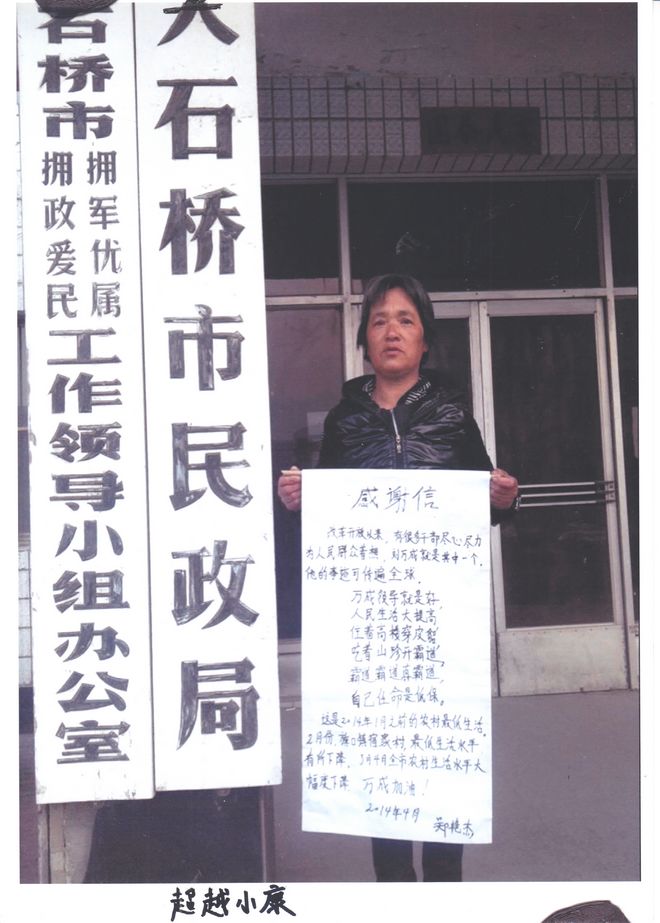 石桥市
拥军优属
拥政爱民
工作领导小组办公室
大石桥市民政局
感谢信
改革开放以来，有很多干部尽心尽力
为人民群众着想，刘万成就是其中一个，
他的事迹可传遍全球。
万成领导就是好，
人民生活大提高
住着高楼穿皮袄
吃着山珍开霸道，
霸道霸道真霸道，
自己任命是低保。
这是2014年1月之前的农村最低生活，
2月份，旗口镇宿家村，最低生活水平
有所下降，3月4月全市农村生活水平大
幅度下降 万成加油！
2014年4月
郑艳杰
超越小康